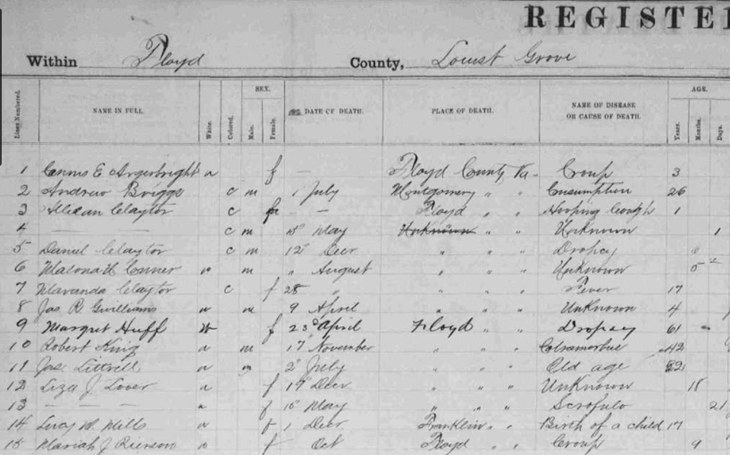 REGISTER
Within Floyd County, Locust Grove
Lines Numbered. NAME IN FULL. White. Colored. SEX. Male. Female. DATE OF DEATH. PLACE OF DEATH. NAME OF DISEASE OR CAUSE OF DEATH. AGE. Years. Months. Days.
1 E Argerbright w f — Floyd County Va Croup 3
2 Andrew Briggs c m 1 July Montgomery " " Consumption 26
3 Claytor c f — Floyd " " Hooping Cough 1
4 — — c m 15 May Unknown " " Unknown 1
5 Daniel Claytor c m 12 Decr " " " Dropcy 6
6 Conner w m " August " " " Unknown 5
7 Claytor c f 28 " " " " Fever 17
8 Jas R Gwilliams w m 9 April " " " Unknown 4
9 Margret Huff W f 23 April Floyd " " Dropsey 61
10 Robert King w m 17 November " " " 42
11 Jas. Littrell w m 2 July " " " Old age 82
12 Liza J Loser w f 19 Decr " " " Unknown 18
13 — — w f 15 May " " " Scrofulo 21
14 Lucy W Mells w f 1 Decr Franklin " " Birth of a child 17
15 Mariah J w f Oct Floyd " " Croup 9